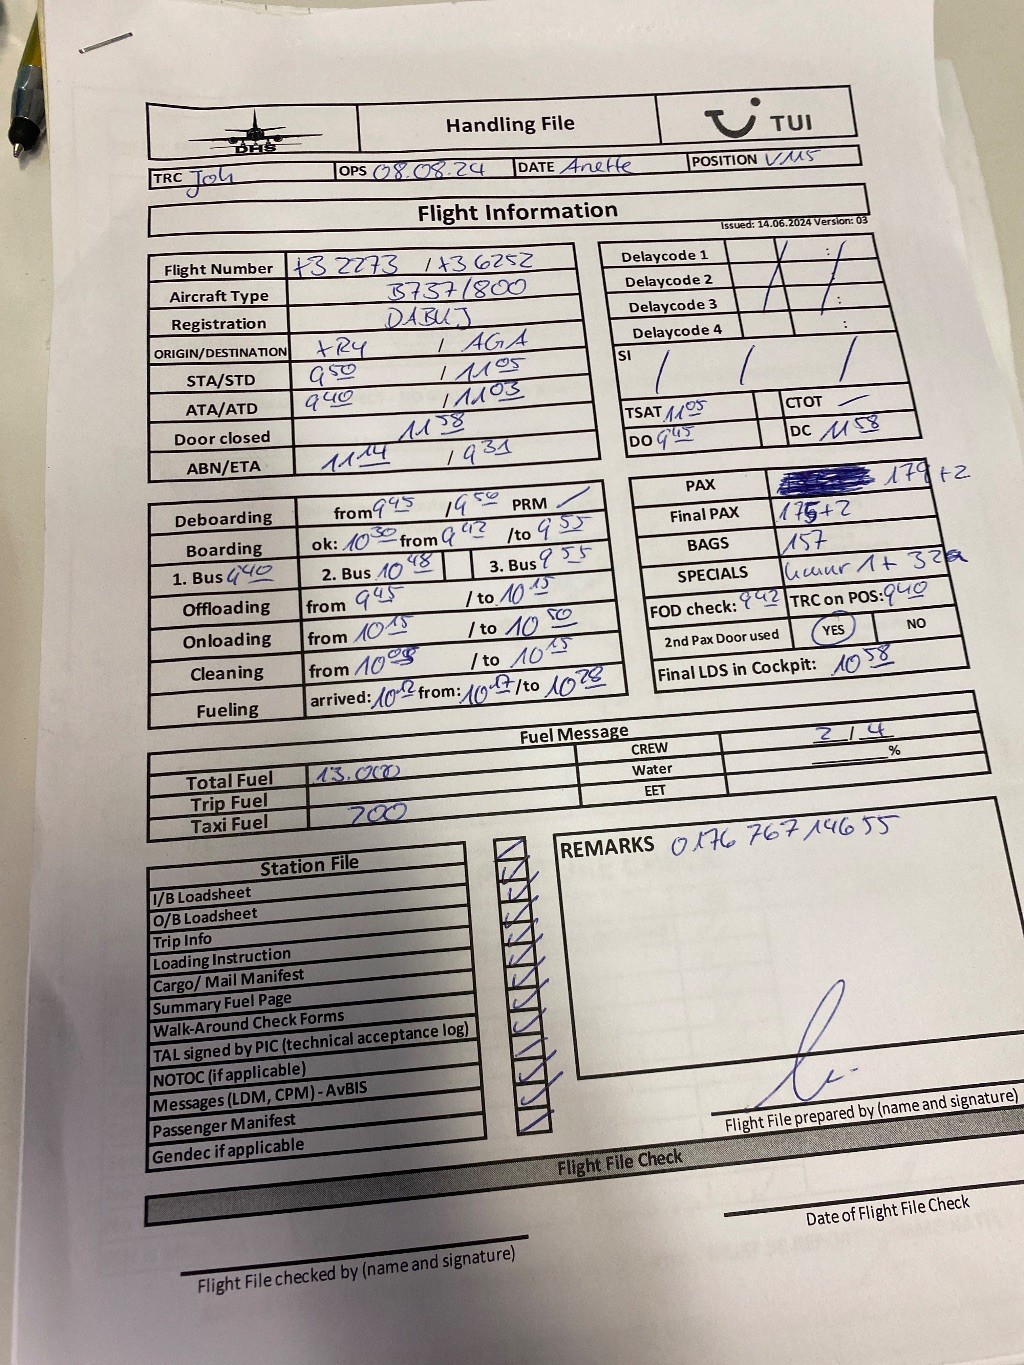 DHS Handling File TUI
TRC Joh OPS 08.08.24 DATE Anette POSITION V115
Flight Information
Issued: 14.06.2024 Version: 03
Flight Number X3 2273 / X3 6252
Aircraft Type B737/800
Registration DABUJ
ORIGIN/DESTINATION XRY / AGA
STA/STD 9 50 / 11 05
ATA/ATD 9 40 / 11 03
Door closed 11 58
ABN/ETA 11 14 / 9 31
Delaycode 1 / / :
Delaycode 2
Delaycode 3 :
Delaycode 4 :
SI / / /
TSAT 11 05 CTOT —
DO 9 45 DC 11 58
Deboarding from 9 45 / 9 50 PRM /
Boarding ok: 10 30 from 9 42 /to 9 55
1. Bus 9 40 2. Bus 10 48 3. Bus 9 55
Offloading from 9 45 / to 10 15
Onloading from 10 15 / to 10 50
Cleaning from 10 / to 10 15
Fueling arrived: 10 12 from: 10 17 /to 10 28
PAX 179 +2
Final PAX 175+2
BAGS 157
SPECIALS 1 +
FOD check: 9 42 TRC on POS: 9 40
2nd Pax Door used YES NO
Final LDS in Cockpit: 10 58
Fuel Message
Total Fuel 13.000 CREW 2 / 4
Trip Fuel Water %
Taxi Fuel 200 EET
Station File
I/B Loadsheet
O/B Loadsheet
Trip Info
Loading Instruction
Cargo/ Mail Manifest
Summary Fuel Page
Walk-Around Check Forms
TAL signed by PIC (technical acceptance log)
NOTOC (if applicable)
Messages (LDM, CPM) - AvBIS
Passenger Manifest
Gendec if applicable
REMARKS 0176 767 14655
Flight File prepared by (name and signature)
Flight File Check
Flight File checked by (name and signature)
Date of Flight File Check